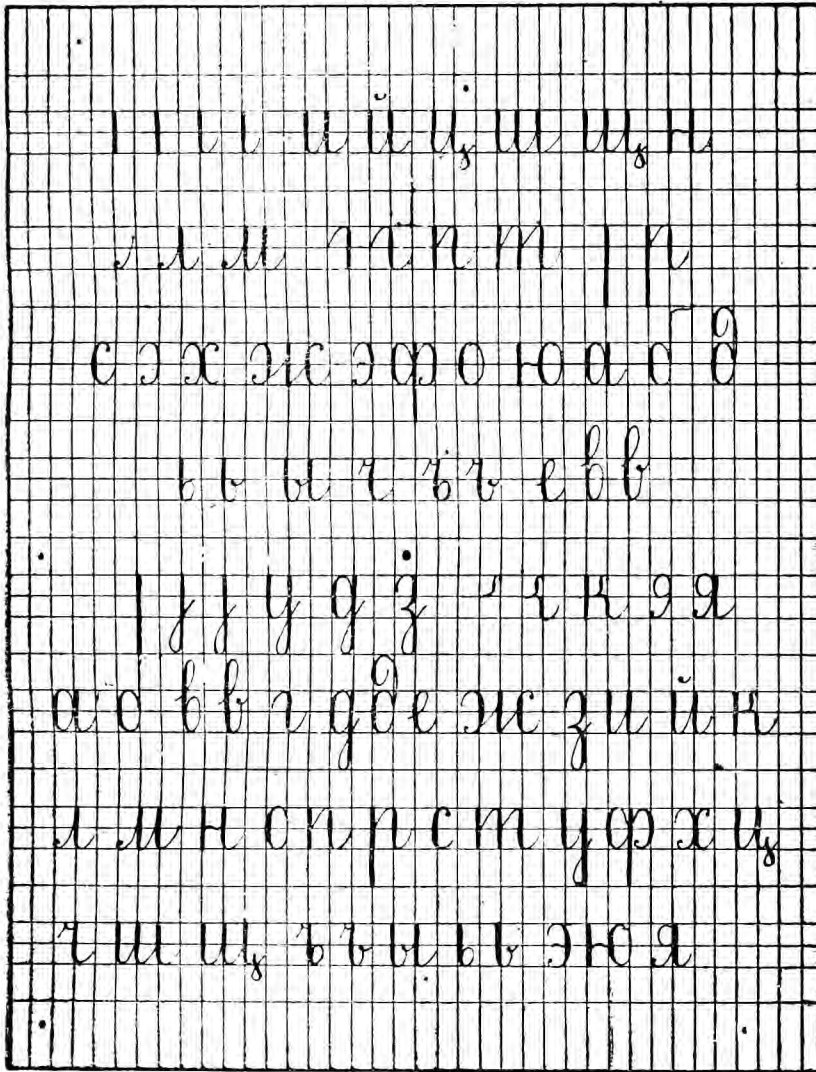 ı ı ı ı и й ц ш щ н
л л м г г п т р п
с э х ж э ф о ю а б д
ь ь ы ч ъ ъ е в в
ȷ ȷ у д з ч к я я
а б в в г д д е ж з и й к
л м н о п р с т у ф х ц
ч ш щ ъ ъ ы ь ь э ю я